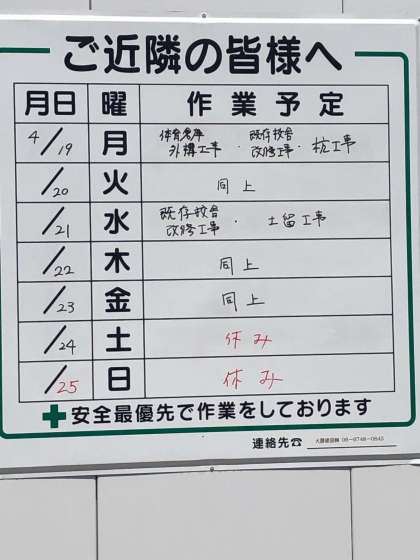 ご近隣の皆様へ
月日 曜 作業予定
4/19 月 体育倉庫外構工事・既存校舎改修工事・杭工事
/20 火 同上
/21 水 既存校舎改修工事・土留工事
/22 木 同上
/23 金 同上
/24 土 休み
/25 日 休み
安全最優先で作業をしております
連絡先☎